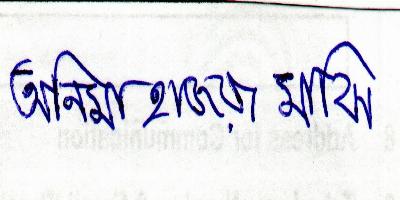 অনিমা হাজরা মাঝি